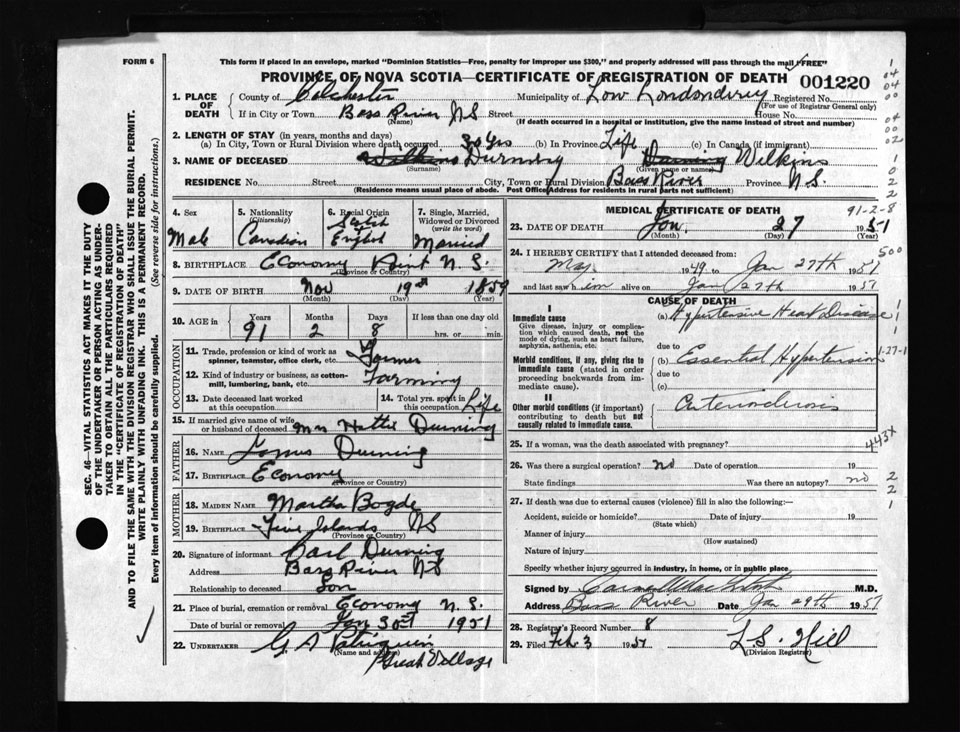 FORM 6
This form if placed in an envelope, marked "Dominion Statistics—Free, penalty for improper use $300," and properly addressed will pass through the mail "FREE"
PROVINCE OF NOVA SCOTIA—CERTIFICATE OF REGISTRATION OF DEATH 001220
1. PLACE OF DEATH
County of Colchester Municipality of Low Londonderry Registered No.
(For use of Registrar General only)
If in City or Town Bass River NS Street House No.
(Name) (If death occurred in a hospital or institution, give the name instead of street and number)
2. LENGTH OF STAY (in years, months and days)
(a) In City, Town or Rural Division where death occurred 30 yrs (b) In Province Life (c) In Canada (if immigrant)
3. NAME OF DECEASED Wilkins Durning Durning Wilkins
(Surname) (Given name or names)
RESIDENCE No. Street City, Town or Rural Division Bass River Province N S
(Residence means usual place of abode. Post Office Address for residents in rural parts not sufficient)
4. Sex
Male
5. Nationality
(Citizenship)
Canadian
6. Racial Origin
English
7. Single, Married, Widowed or Divorced
(write the word)
Married
8. BIRTHPLACE Economy Point N. S.
(Province or Country)
9. DATE OF BIRTH Nov 19 1859
(Month) (Day) (Year)
10. AGE in
Years Months Days If less than one day old
91 2 8 hrs. or min.
OCCUPATION
11. Trade, profession or kind of work as spinner, teamster, office clerk, etc. Farmer
12. Kind of industry or business, as cotton-mill, lumbering, bank, etc. Farming
13. Date deceased last worked at this occupation
14. Total yrs. spent in this occupation Life
15. If married give name of wife or husband of deceased Mrs Hattie Durning
FATHER
16. NAME James Durning
17. BIRTHPLACE Economy
(Province or Country)
MOTHER
18. MAIDEN NAME Martha
19. BIRTHPLACE Five Islands NS
(Province or Country)
20. Signature of informant Carl Durning
Address Bass River NS
Relationship to deceased Son
21. Place of burial, cremation or removal Economy N. S.
Date of burial or removal Jan 30 1951
22. UNDERTAKER G A Patriquin
(Name and address)
Great Village
MEDICAL CERTIFICATE OF DEATH 91-2-8
23. DATE OF DEATH Jan 27 1951
(Month) (Day) (Year)
24. I HEREBY CERTIFY that I attended deceased from: 500
May 1949 to Jan 27th 1951
and last saw him alive on Jan 27th 1951
CAUSE OF DEATH
I
Immediate cause
Give disease, injury or complication which caused death, not the mode of dying, such as heart failure, asphyxia, asthenia, etc.
(a) Hypertensive Heart Disease
due to
Morbid conditions, if any, giving rise to immediate cause (stated in order proceeding backwards from immediate cause).
(b) Essential Hypertension
due to
(c)
II
Other morbid conditions (if important) contributing to death but not causally related to immediate cause.
Arteriosclerosis
443X
25. If a woman, was the death associated with pregnancy?
26. Was there a surgical operation? no Date of operation 19
State findings Was there an autopsy? no
27. If death was due to external causes (violence) fill in also the following:—
Accident, suicide or homicide? Date of injury 19
(State which)
Manner of injury
(How sustained)
Nature of injury
Specify whether injury occurred in industry, in home, or in public place
Signed by M.D.
Address Bass River Date Jan 29th 1951
28. Registrar's Record Number 8
29. Filed Feb 3 1951 L S. Hill
(Division Registrar)
SEC. 46—VITAL STATISTICS ACT MAKES IT THE DUTY
OF THE UNDERTAKER OR PERSON ACTING AS UNDER-
TAKER TO OBTAIN ALL THE PARTICULARS REQUIRED
IN THE "CERTIFICATE OF REGISTRATION OF DEATH"
AND TO FILE THE SAME WITH THE DIVISION REGISTRAR WHO SHALL ISSUE THE BURIAL PERMIT.
WRITE PLAINLY WITH UNFADING INK. THIS IS A PERMANENT RECORD.
Every item of information should be carefully supplied. (See reverse side for instructions.)